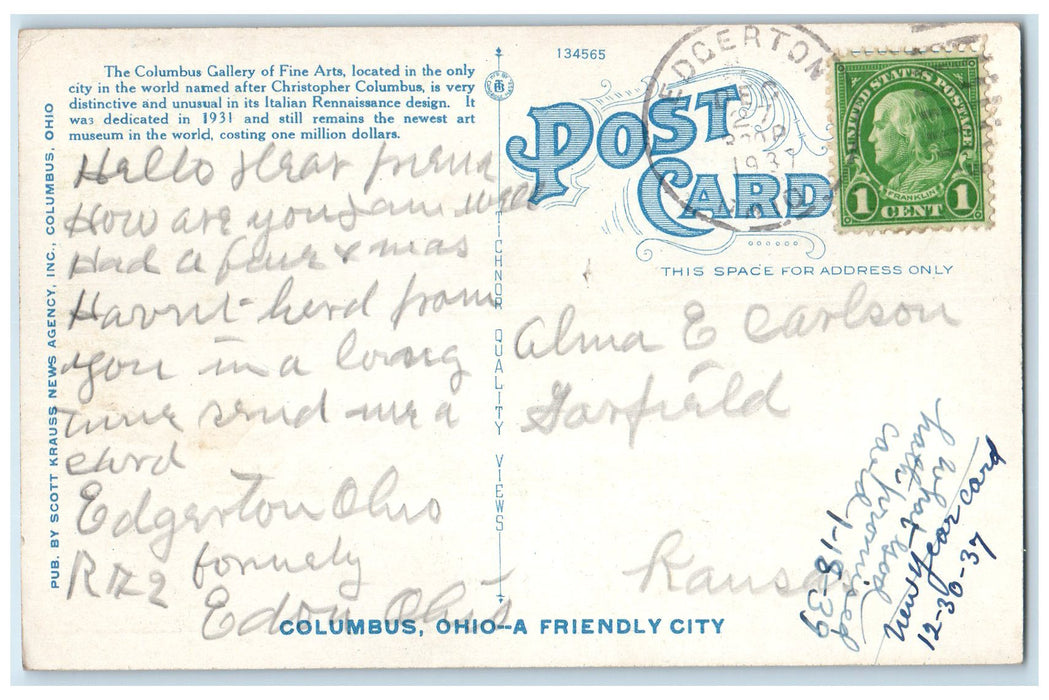 The Columbus Gallery of Fine Arts, located in the only
city in the world named after Christopher Columbus, is very
distinctive and unusual in its Italian Rennaissance design. It
was dedicated in 1931 and still remains the newest art
museum in the world, costing one million dollars.
Hello dear friend
How are you I am well
Had a fine xmas
Havn't herd from
you in a loung
time send me a
card
Edgerton Ohio
R #2 formely
Edon Ohio
PUB. BY SCOTT KRAUSS NEWS AGENCY, INC., COLUMBUS, OHIO
TICHNOR QUALITY VIEWS
134565
POST
CARD
EDGERTON
DEC
28
1937
OHIO
UNITED STATES POSTAGE
FRANKLIN
1 CENT 1
THIS SPACE FOR ADDRESS ONLY
Alma E Carlson
Garfield
Kansas
what God
hath promised
card
1-18-39
New Year card
12-30-37
COLUMBUS, OHIO--A FRIENDLY CITY